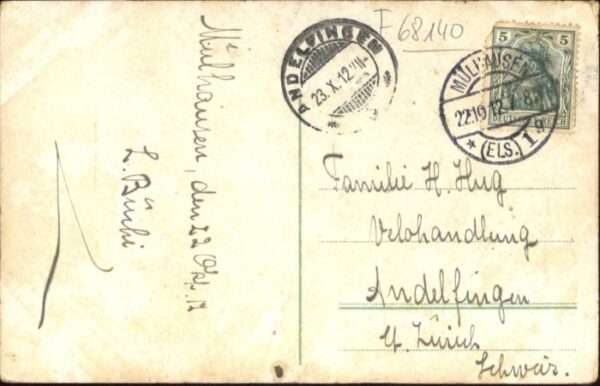 Mülhausen, den 22 Okt. 12
L. Büchi
ANDELFINGEN
23.X.12
F 68140
5 5
MÜLHAUSEN
22.10.12.7-8
* (ELS.) 1 g
Familie H. Hug
Velohandlung
Andelfingen
Ct. Zürich
Schweiz.